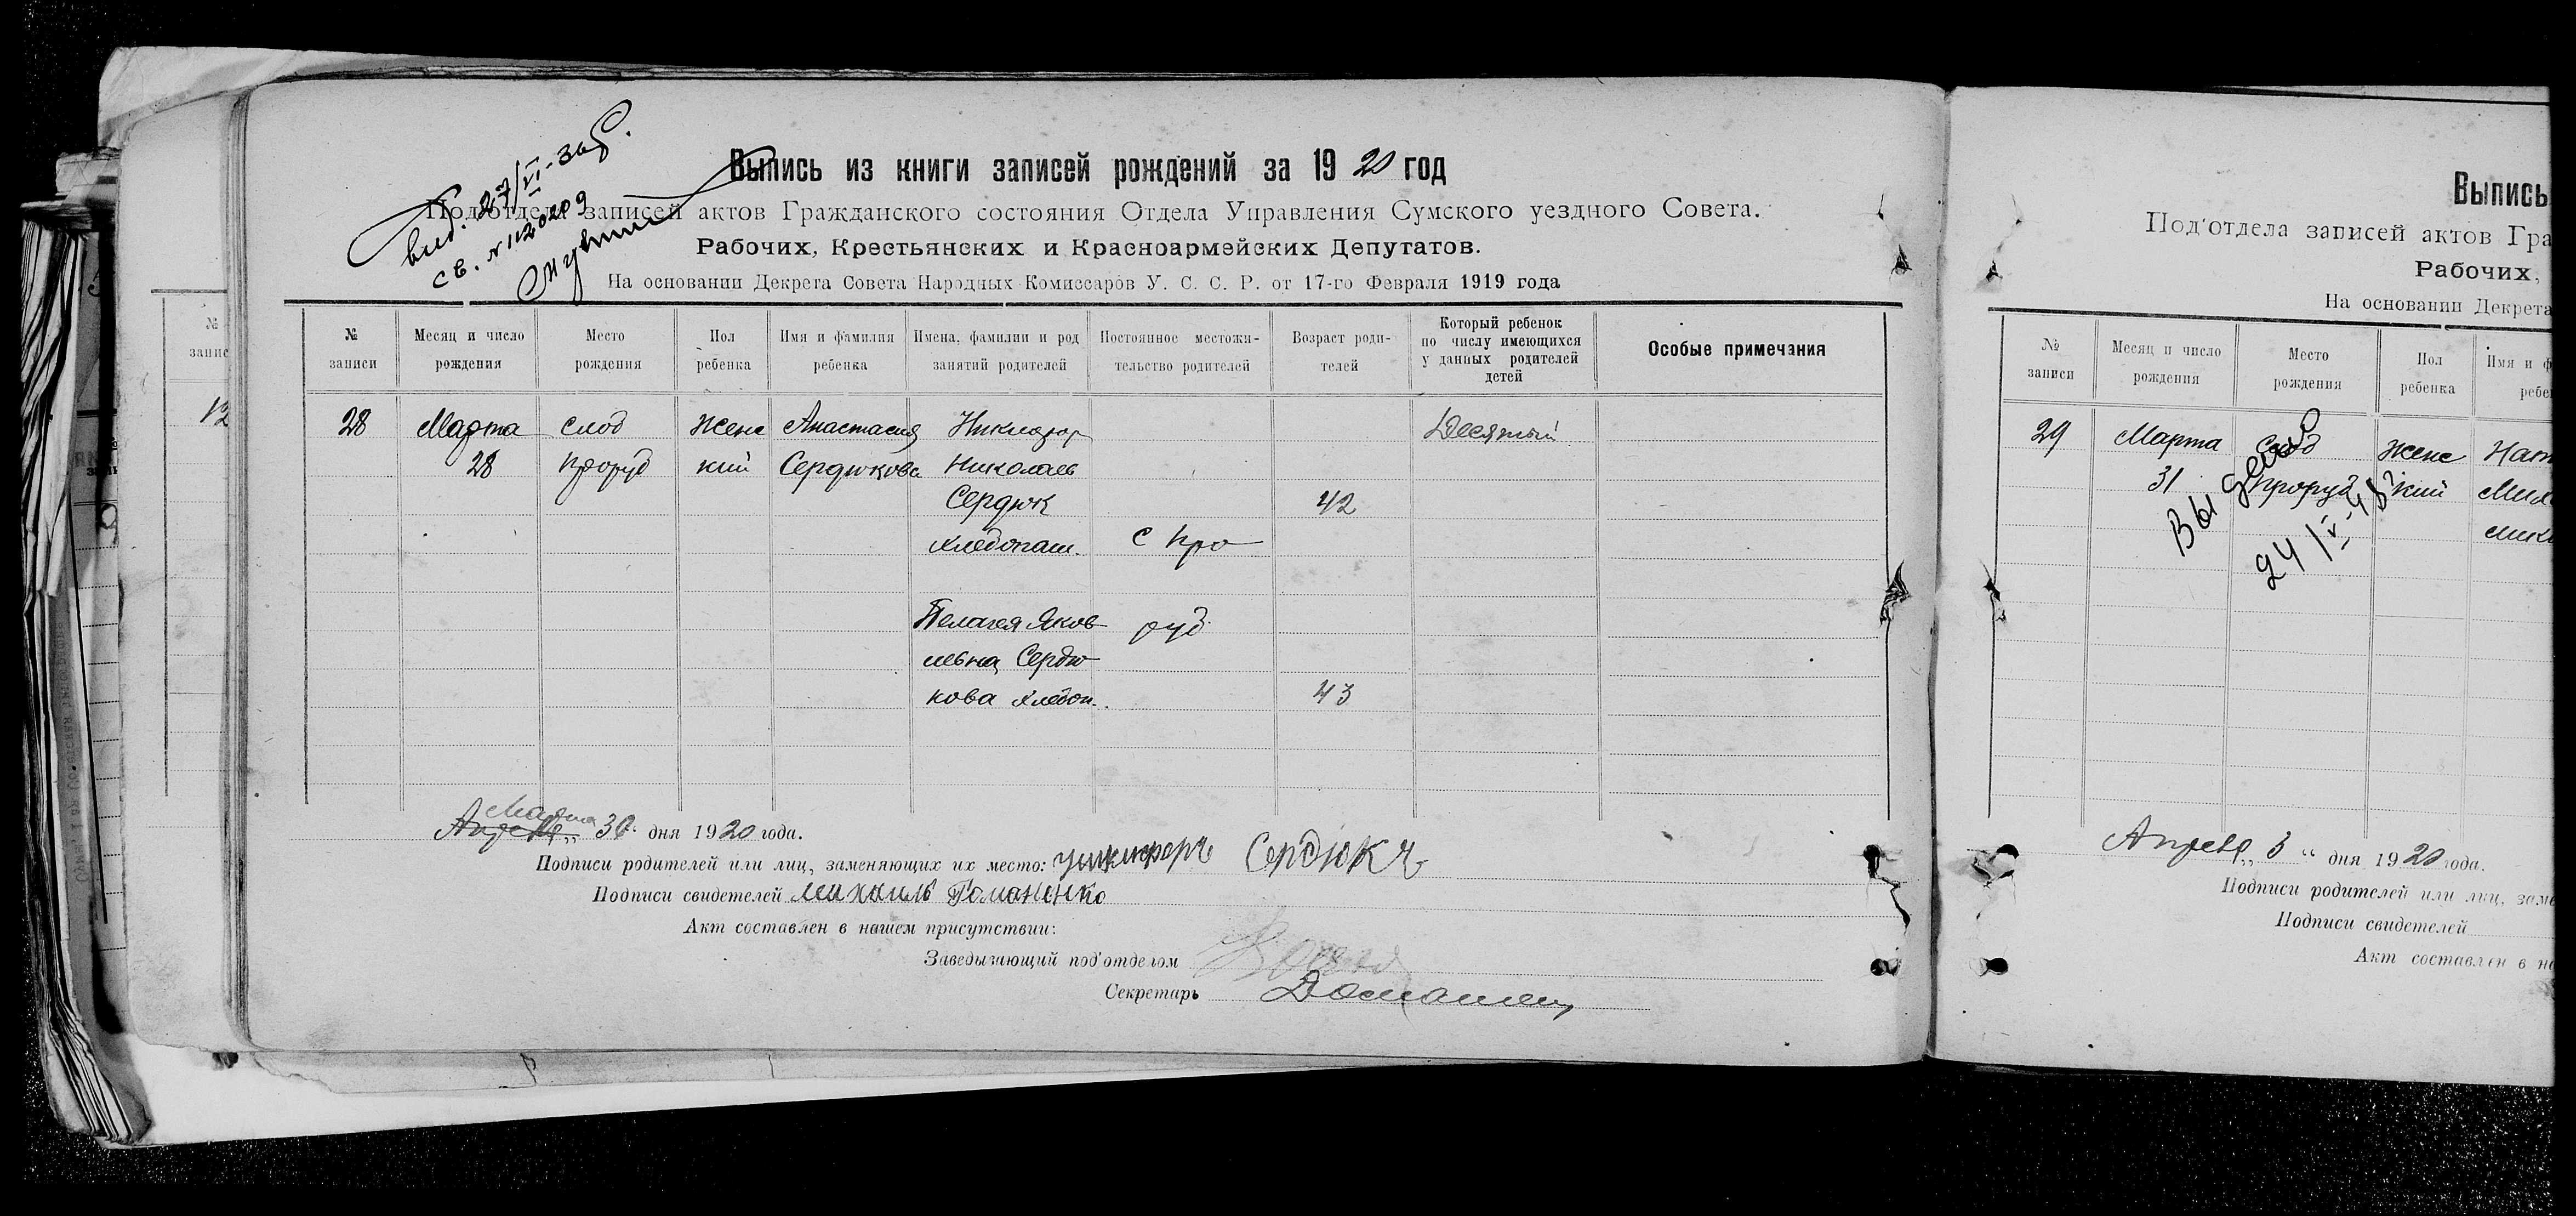 Выд. 27/VI-36г.
св. № 120209
Выпись из книги записей рождений за 1920 год
Под'отдела записей актов Гражданского состояния Отдела Управления Сумского уездного Совета.
Рабочих, Крестьянских и Красноармейских Депутатов.
На основании Декрета Совета Народных Комиссаров У. С. С. Р. от 17-го Февраля 1919 года
№ записи
Месяц и число рождения
Место рождения
Пол ребенка
Имя и фамилия ребенка
Имена, фамилии и род занятий родителей
Постоянное местожи-тельство родителей
Возраст роди-телей
Который ребенок по числу имеющихся у данных родителей детей
Особые примечания
28 Марта слод Женс Анастасия Никифор Десятый
28 Проруб кий Сердюкова Николаев
Сердюк 42
хлебопаш. с Про
Пелагея Яков руб
левна Сердю
кова хлебоп. 43
Марта
Апреля „ 30 дня 1920 года.
Подписи родителей или лиц, заменяющих их место: Сердюкъ
Подписи свидетелей Михаилъ Романенко
Акт составлен в нашем присутствии:
Заведывающий под'отделом
Секретарь
№
запис
12
Выпись
Под'отдела записей актов Гра
Рабочих,
На основании Декрета
№ записи
Месяц и число рождения
Место рождения
Пол ребенка
Имя и ф
ребе
29 Марта слод Женс Нат
31 Проруб кий Мих
Выдано
24/V-48
Апреля „ 3 " дня 1920 года.
Подписи родителей или лиц, заме
Подписи свидетелей
Акт составлен в на